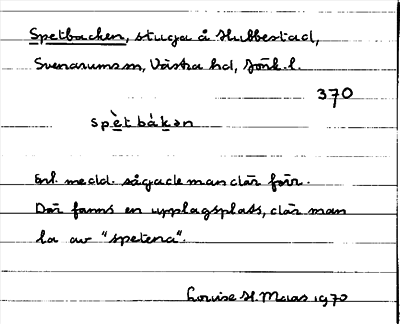 Spetbacken, stuga å Hubbestad,
Svenarums sn, Västra hd, Jönk. l.
370
spèt bàkən
Enl. medd. sågade man där förr.
Där fanns en upplagsplats, där man
la av "spetena".
Louise H. Maas 1970